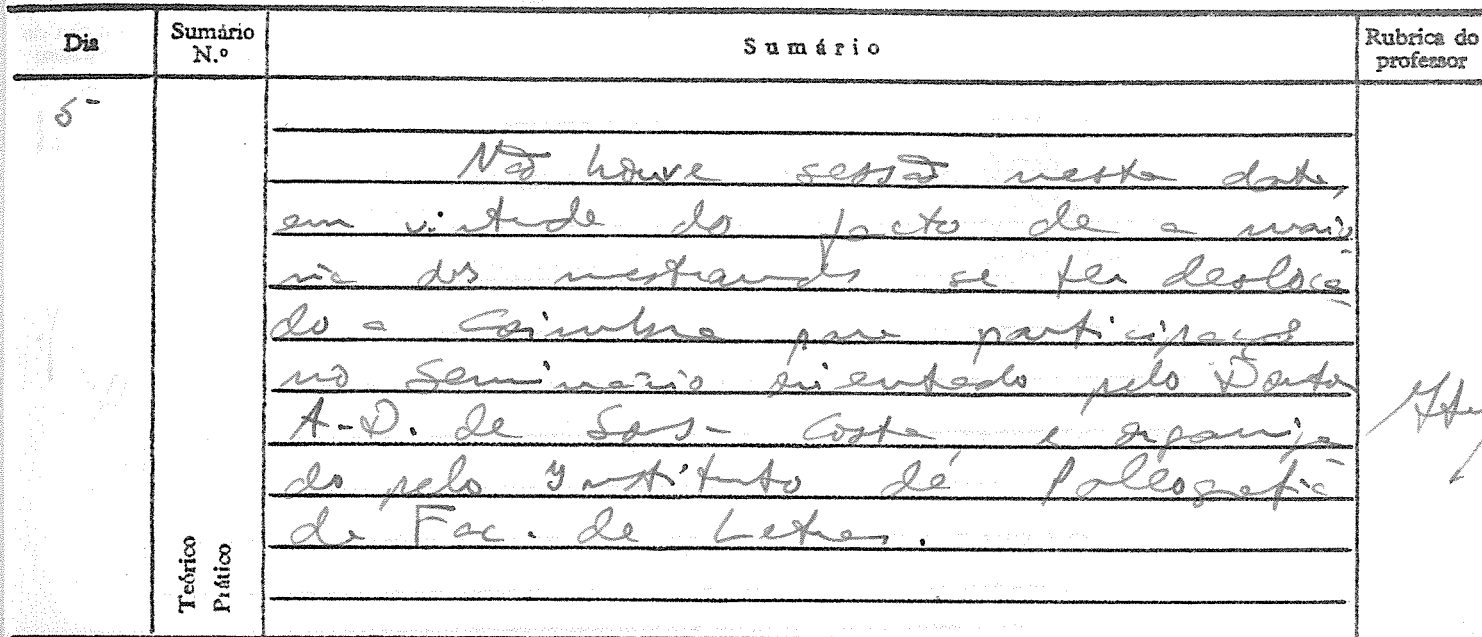 Dia
Sumário N.º
Sumário
Rubrica do professor
5
Não houve sessão nesta data,
em virtude do facto de a maio
ria dos mestrandos se ter desloca
do a Coimbra para participação
no Seminário orientado pelo Doutor
A.D. de Costa e organiza
do pelo Instituto de Paleografia
da Fac. de Letras.
Teórico
Prático